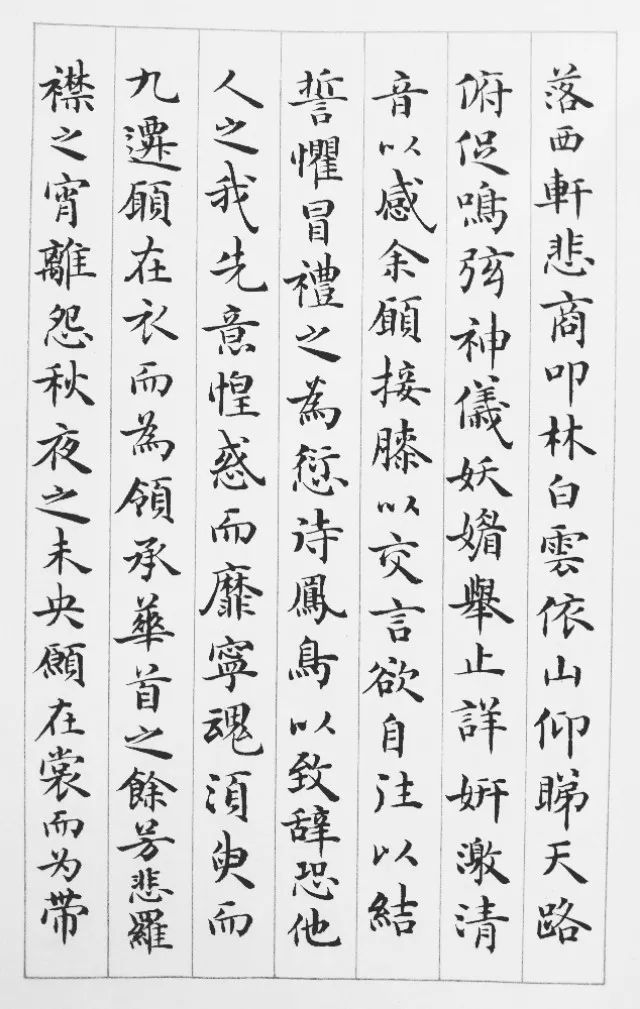 落西軒悲商叩林白雲依山仰睇天路
俯促鳴弦神儀妖媚舉止詳妍激清
音以感余願接膝以交言欲自往以結
誓懼冒禮之為愆待鳳鳥以致辞恐他
人之我先意惶惑而靡寧魂須臾而
九遷願在衣而為領承華首之餘芳悲羅
襟之宵離怨秋夜之未央願在裳而为带